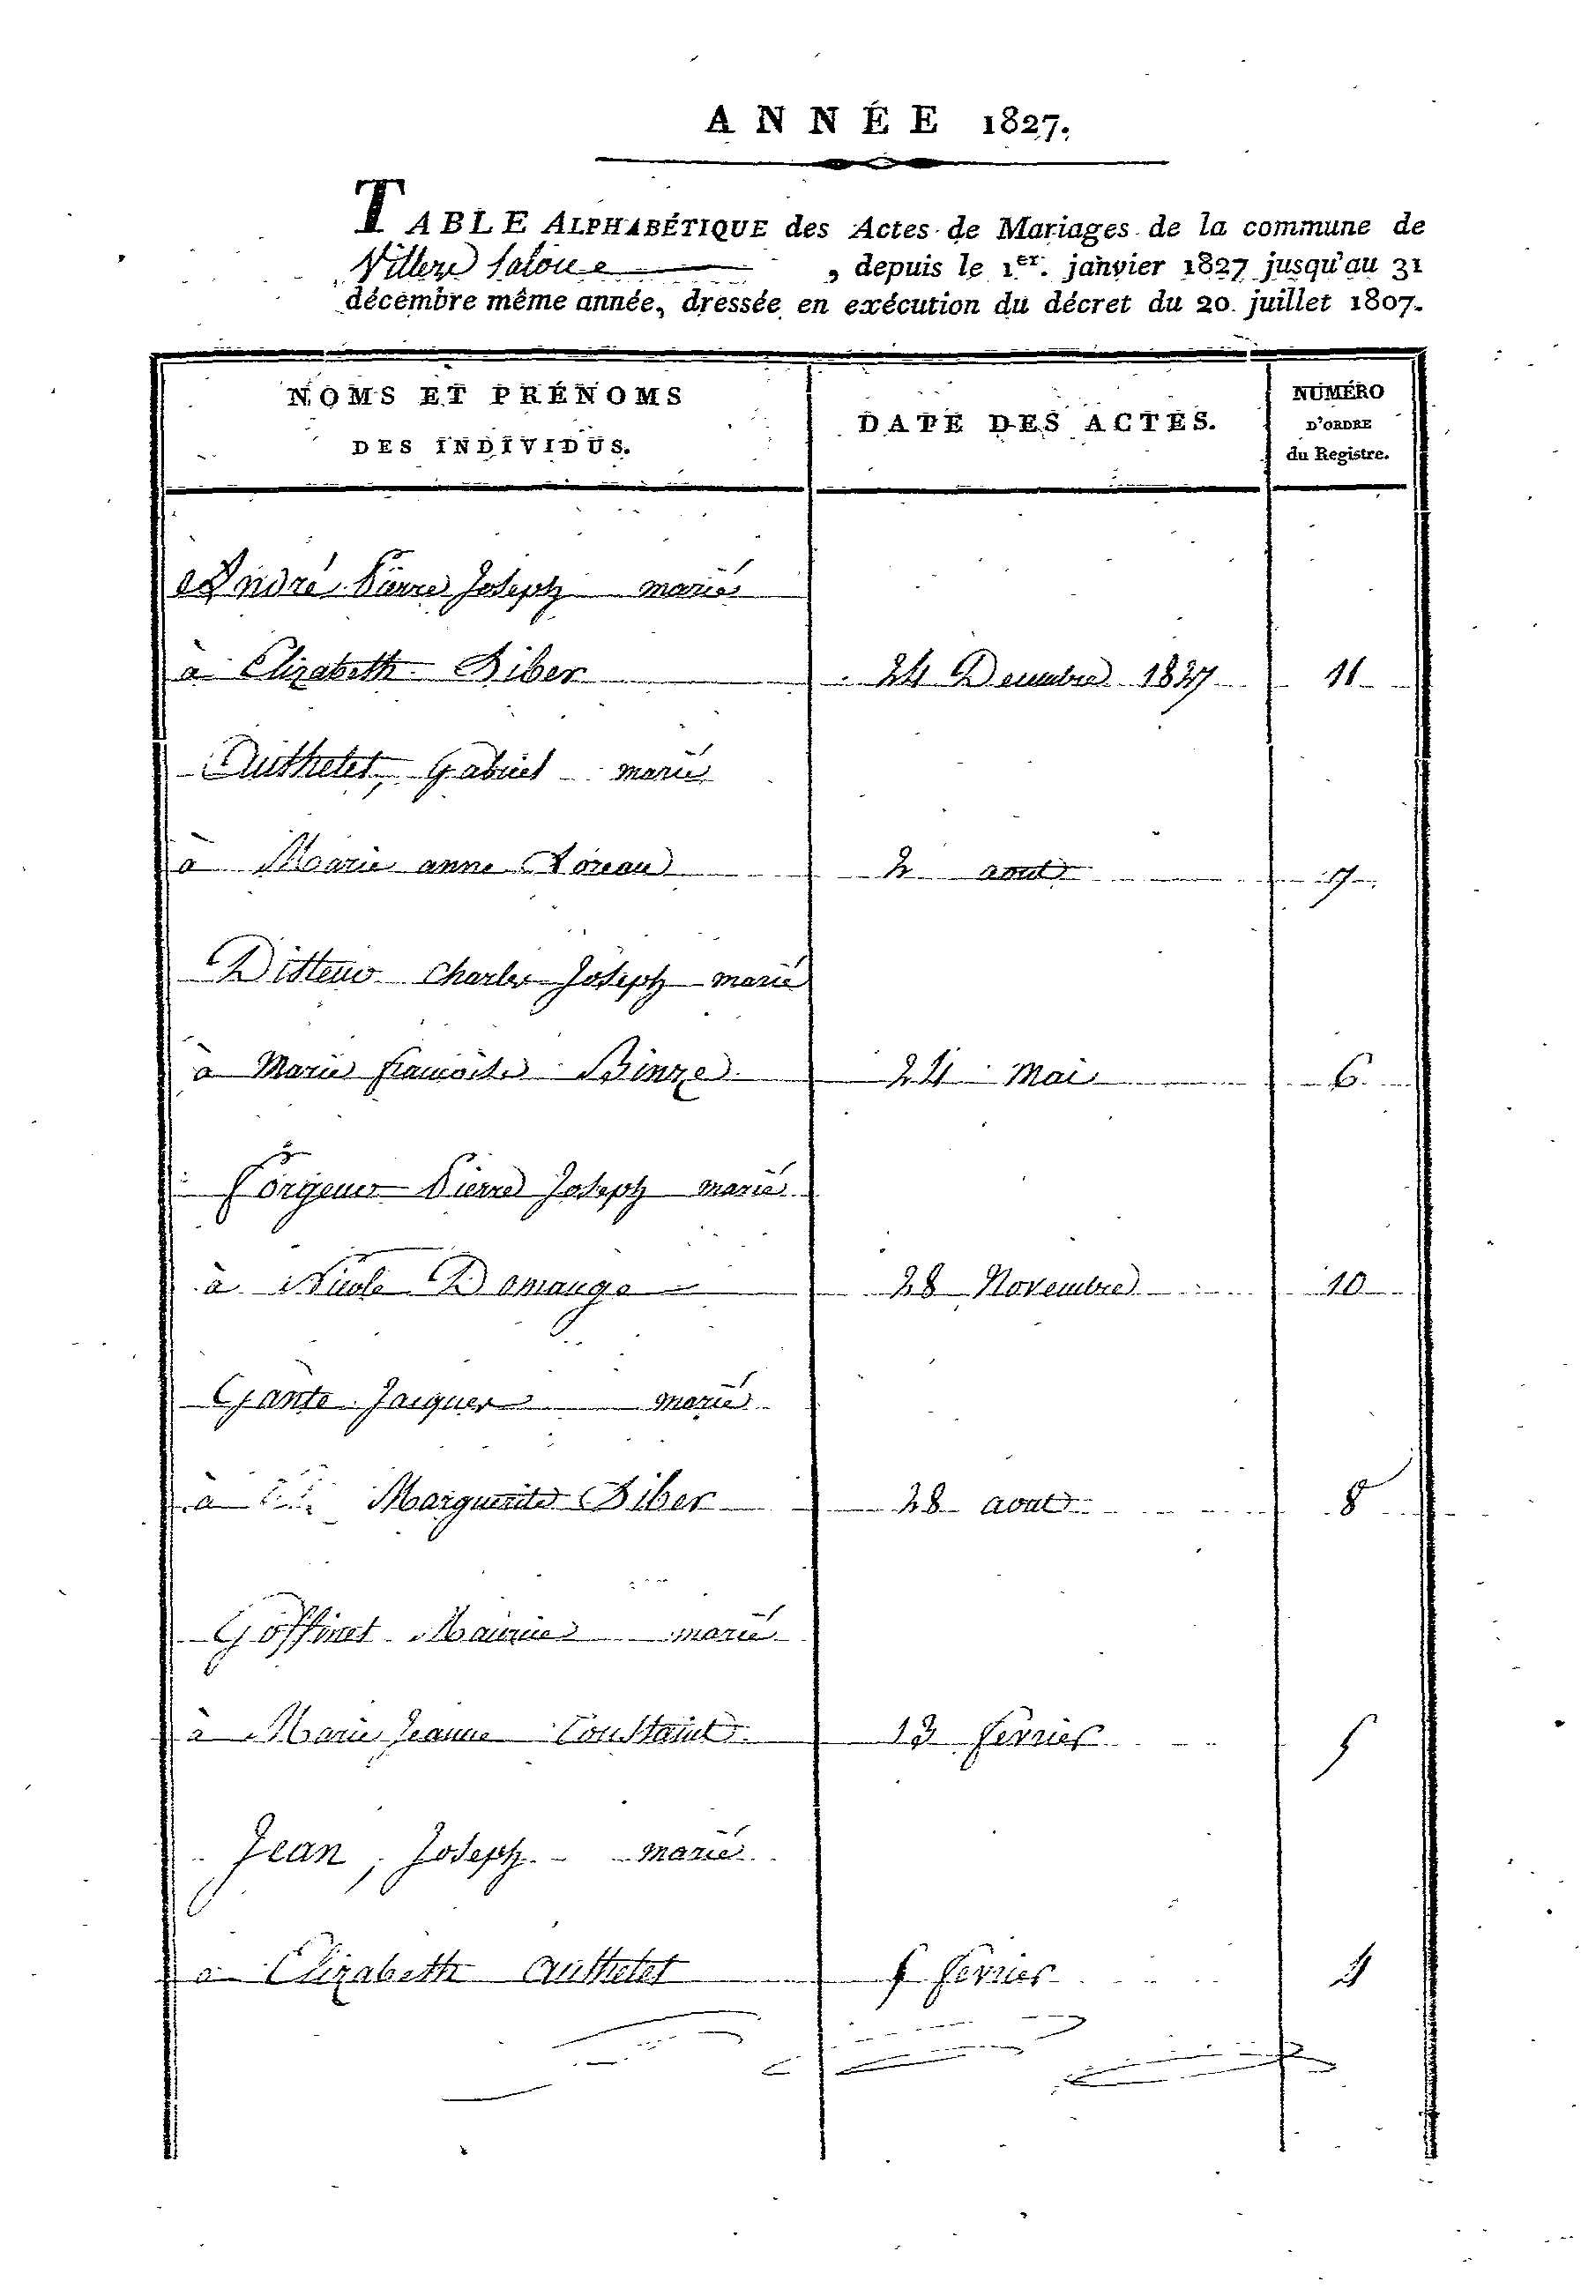 ANNÉE 1827.
TABLE ALPHABÉTIQUE des Actes de Mariages de la commune de
Villers la loue, depuis le 1er. janvier 1827 jusqu'au 31
décembre même année, dressée en exécution du décret du 20 juillet 1807.
NOMS ET PRÉNOMS
DES INDIVIDUS.
DATE DES ACTES.
NUMÉRO
D'ORDRE
du Registre.
André Pierre Joseph marié
à Elizabeth Siber 24 Decembre 1827 11
Authelet, Gabriel marié
à Marie anne 2 aout 7
Charles Joseph marié
à Marie francoise Binze 24 Mai 6
Forgeur Pierre Joseph marié
à Nicole Domange 28 Novembre 10
Gante Jacques marié
à Marguerite Siber 28 aout 8
Goffinet Maurice marié
à Marie Jeanne Constaint 13 fevrier 5
Jean, Joseph marié
a Elizabeth authelet fevrier 4